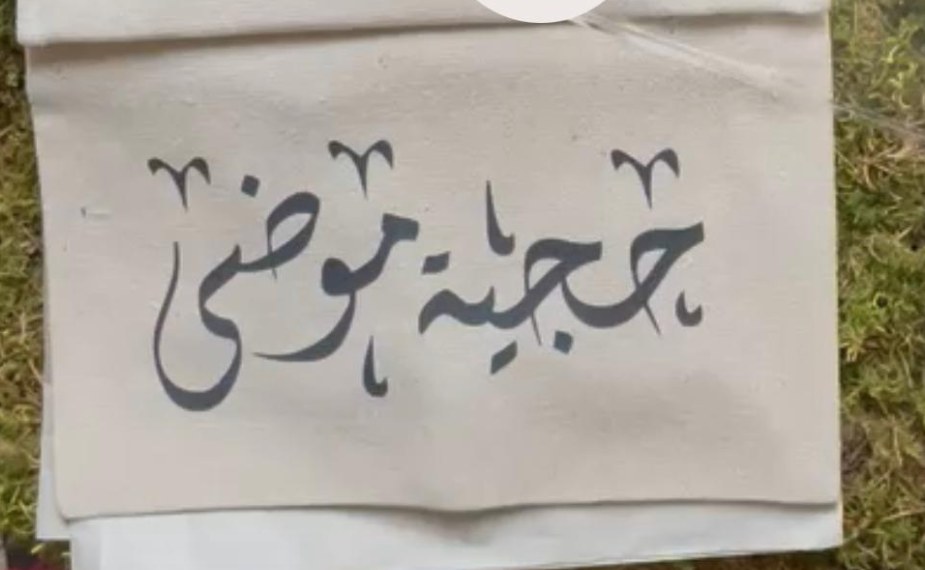 حجية موضى